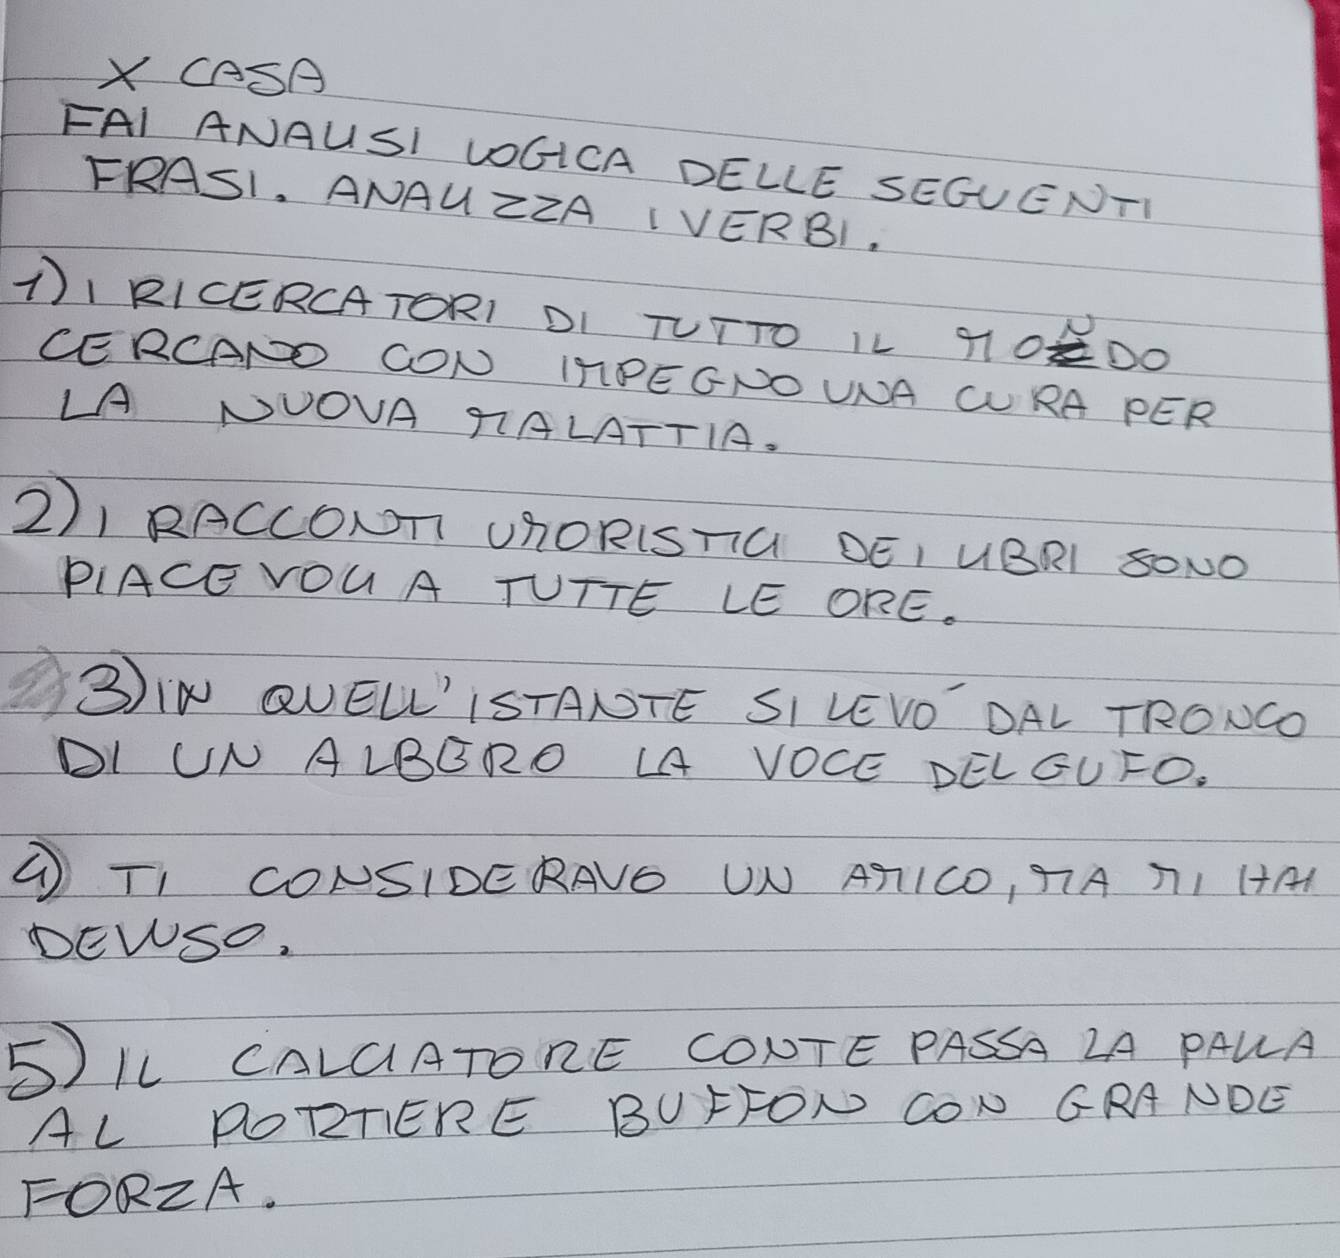 X CASA
FAI ANALISI LOGICA DELLE SEGUENTI
FRASI. ANALIZZA I VERBI.
1) I RICERCATORI DI TUTTO IL MONDO
CERCANO CON IMPEGNO UNA CURA PER
LA NUOVA MALATTIA.
2) I RACCONTI UMORISTICI DEI LIBRI SONO
PIACEVOLI A TUTTE LE ORE.
3) IN QUELL'ISTANTE SI LEVÓ DAL TRONCO
DI UN ALBERO LA VOCE DEL GUFO.
4) TI CONSIDERAVO UN AMICO, MA MI HAI
DELUSO.
5) IL CALCIATORE CONTE PASSA LA PALLA
AL PORTIERE BUFFON CON GRANDE
FORZA.